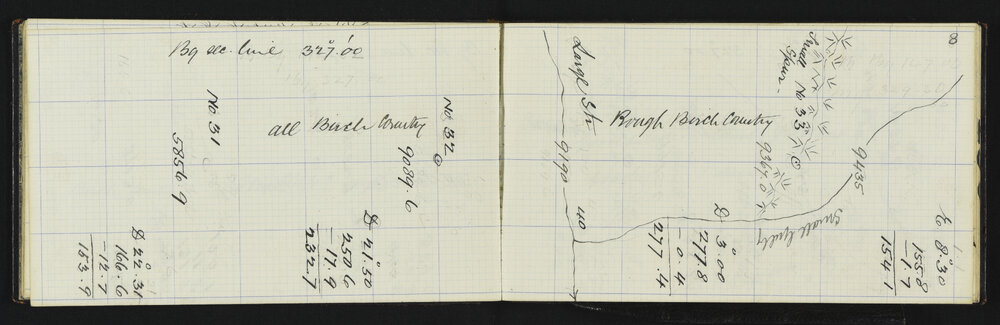 Bg sec. line 327° 00'
No 31
5856.9
all Birch Country
No. 32
9089.6
D 22° 31
166.6
-12.7
153.9
D 21.50
250.6
-17.9
232.7
8
Large Str
9190
40
Rough Birch Country
Small
Spur
No 33
9367.0
9435
Small Gully
D 3° 00
277.8
-0.4
277.4
E 8° 30
155.8
-1.7
154.1